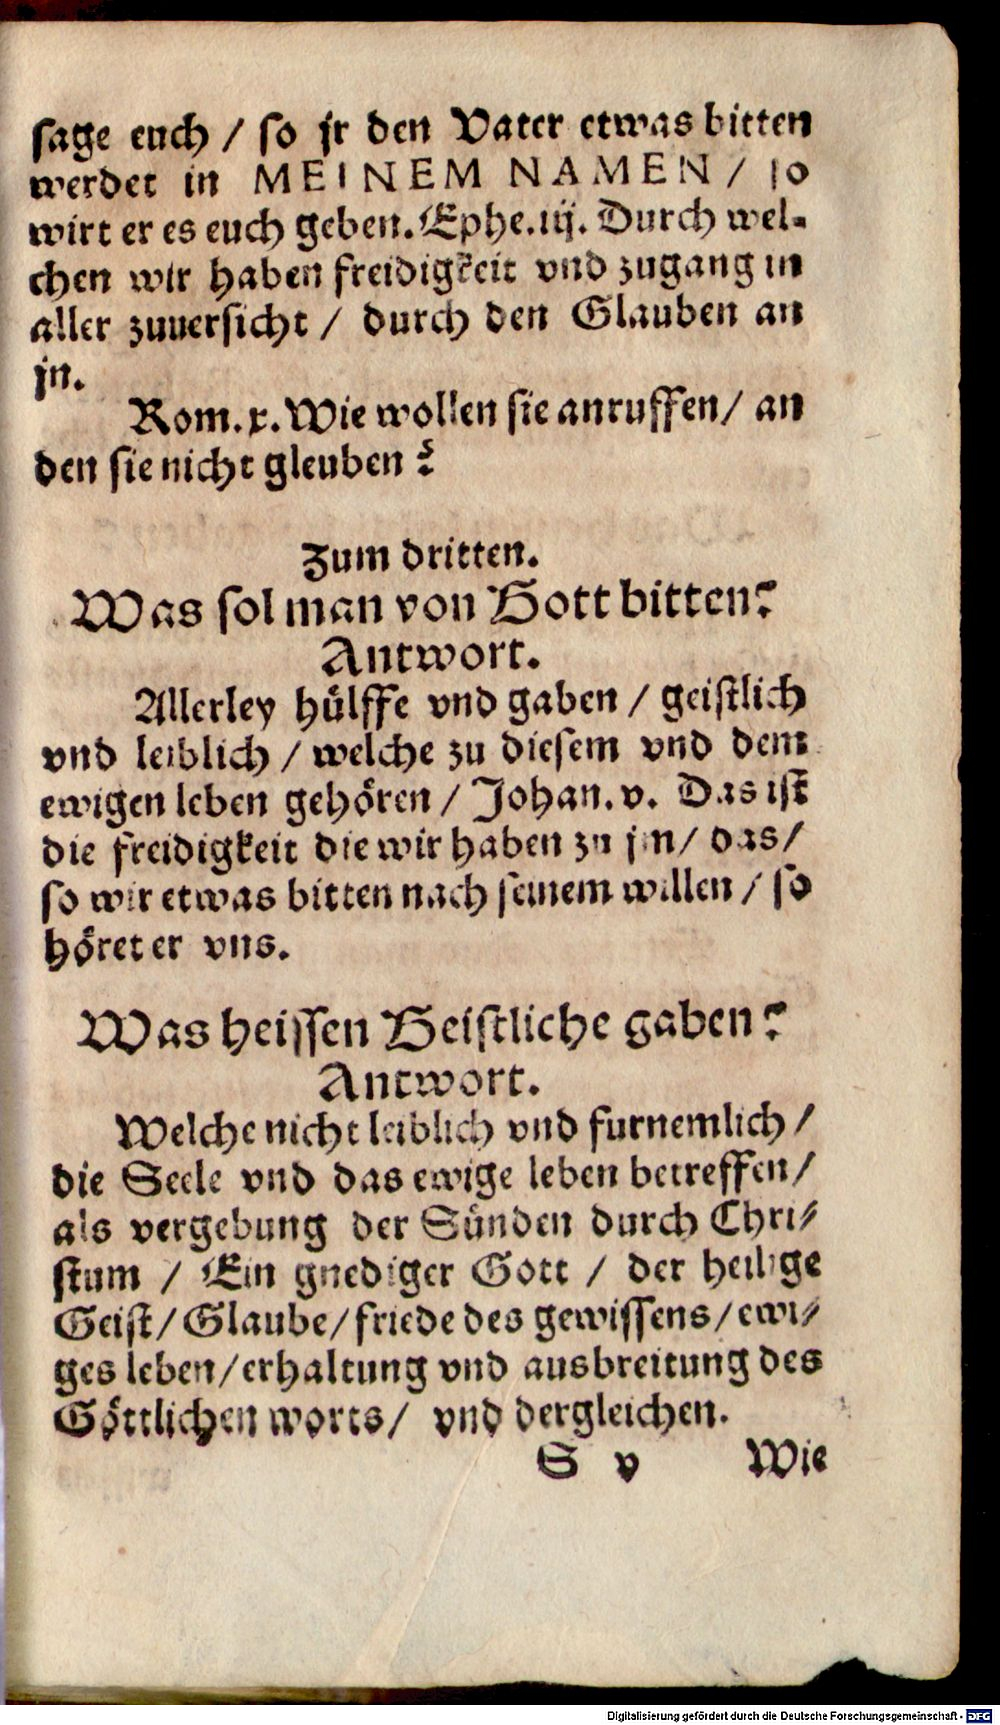 sage euch / so jr den Vater etwas bitten
werdet in MEINEM NAMEN / so
wirt er es euch geben. Ephe. iij. Durch wel-
chen wir haben freidigkeit vnd zugang in
aller zuuersicht / durch den Glauben an
jn.
Rom. x. Wie wollen sie anruffen / an
den sie nicht gleuben?
Zum dritten.
Was sol man von Gott bitten?
Antwort.
Allerley hülffe vnd gaben / geistlich
vnd leiblich / welche zu diesem vnd dem
ewigen leben gehören / Johan. v. Das ist
die freidigkeit die wir haben zu jm / das /
so wir etwas bitten nach seinem willen / so
höret er vns.
Was heissen Geistliche gaben?
Antwort.
Welche nicht leiblich vnd furnemlich /
die Seele vnd das ewige leben betreffen /
als vergebung der Sünden durch Chri-
stum / Ein gnediger Gott / der heilige
Geist / Glaube / friede des gewissens / ewi-
ges leben / erhaltung vnd ausbreitung des
Göttlichen worts / vnd dergleichen.
S v Wie
Digitalisierung gefördert durch die Deutsche Forschungsgemeinschaft - DFG